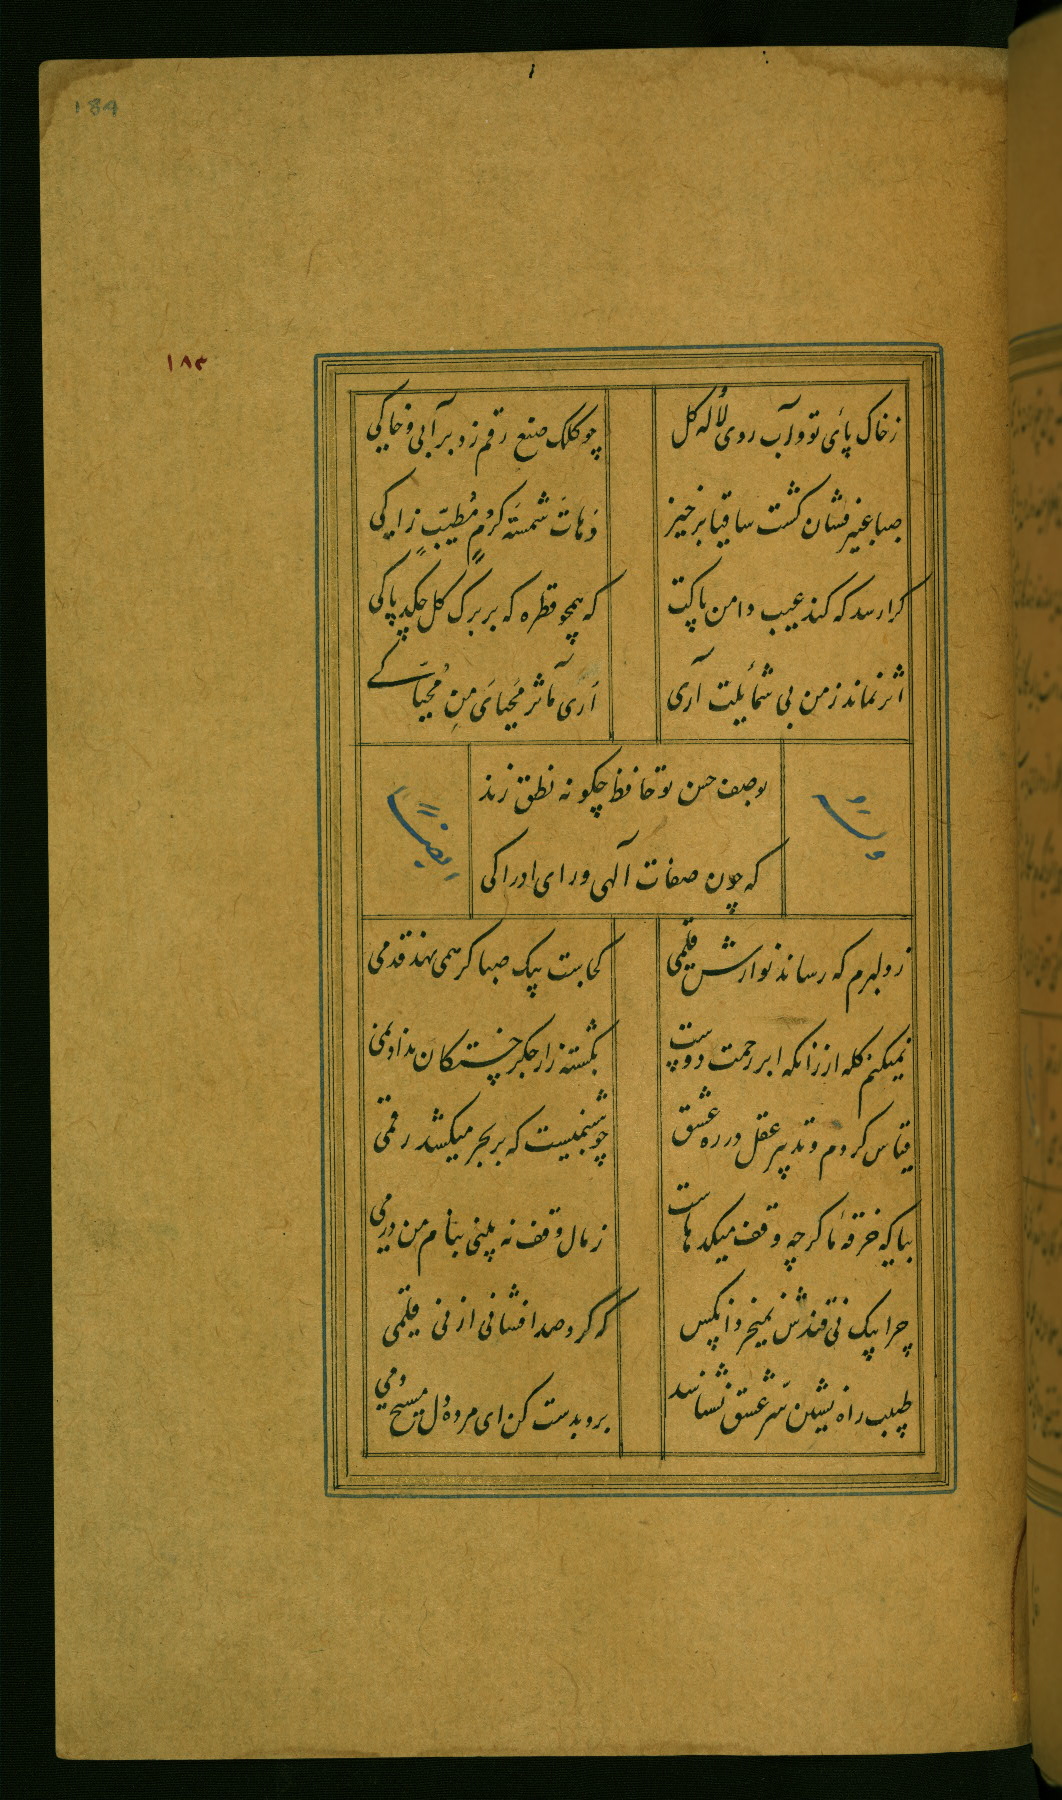 184
۱۸۳
زخاک پائ تو و آب روی لاله کل چو کلک صنع رقم زد بر آبی و خاکی
صبا عنبر فشان کشت ساقیا برخیز وَهاتَ شمسَتَه کرمٍ مُطیّبٍ زاکی
کرا رسد که کند عیب دامن پاکت که همچو قطره که بر برک کل چکد پاکی
اثر نماند زمن بی شمائلیت آری اَری مآثر مَحیایَ مِنِ مُحیّاکے
ولہ
بوصف حسن تو حافظ چکونه نطق زند
که چون صفات آلهی ورای ادراکی
ایضاً
زدلبرم که رساند نوازش قلمی کجاست پیک صبا کر همی نهد قدمی
نمیکنم کله از زانکه ابر رحمت دوست بکشته زار جکر خستکان نداد نمی
قیاس کردم و تدبیر عقل در ره عشق چو شبنمیست که بر بحر میکشد رقمی
بیا که خرقهٔ ما کرچه وقف میکدهاست زمال وقف نه بینی بنام من درمی
چرا بیک نی قندش نمیخرد انکس که کرد صد افشانی از نی قلمی
طبیب راه نشین سر عشق نشناسد برو بدست کن ای مرده دل مسیح دمی